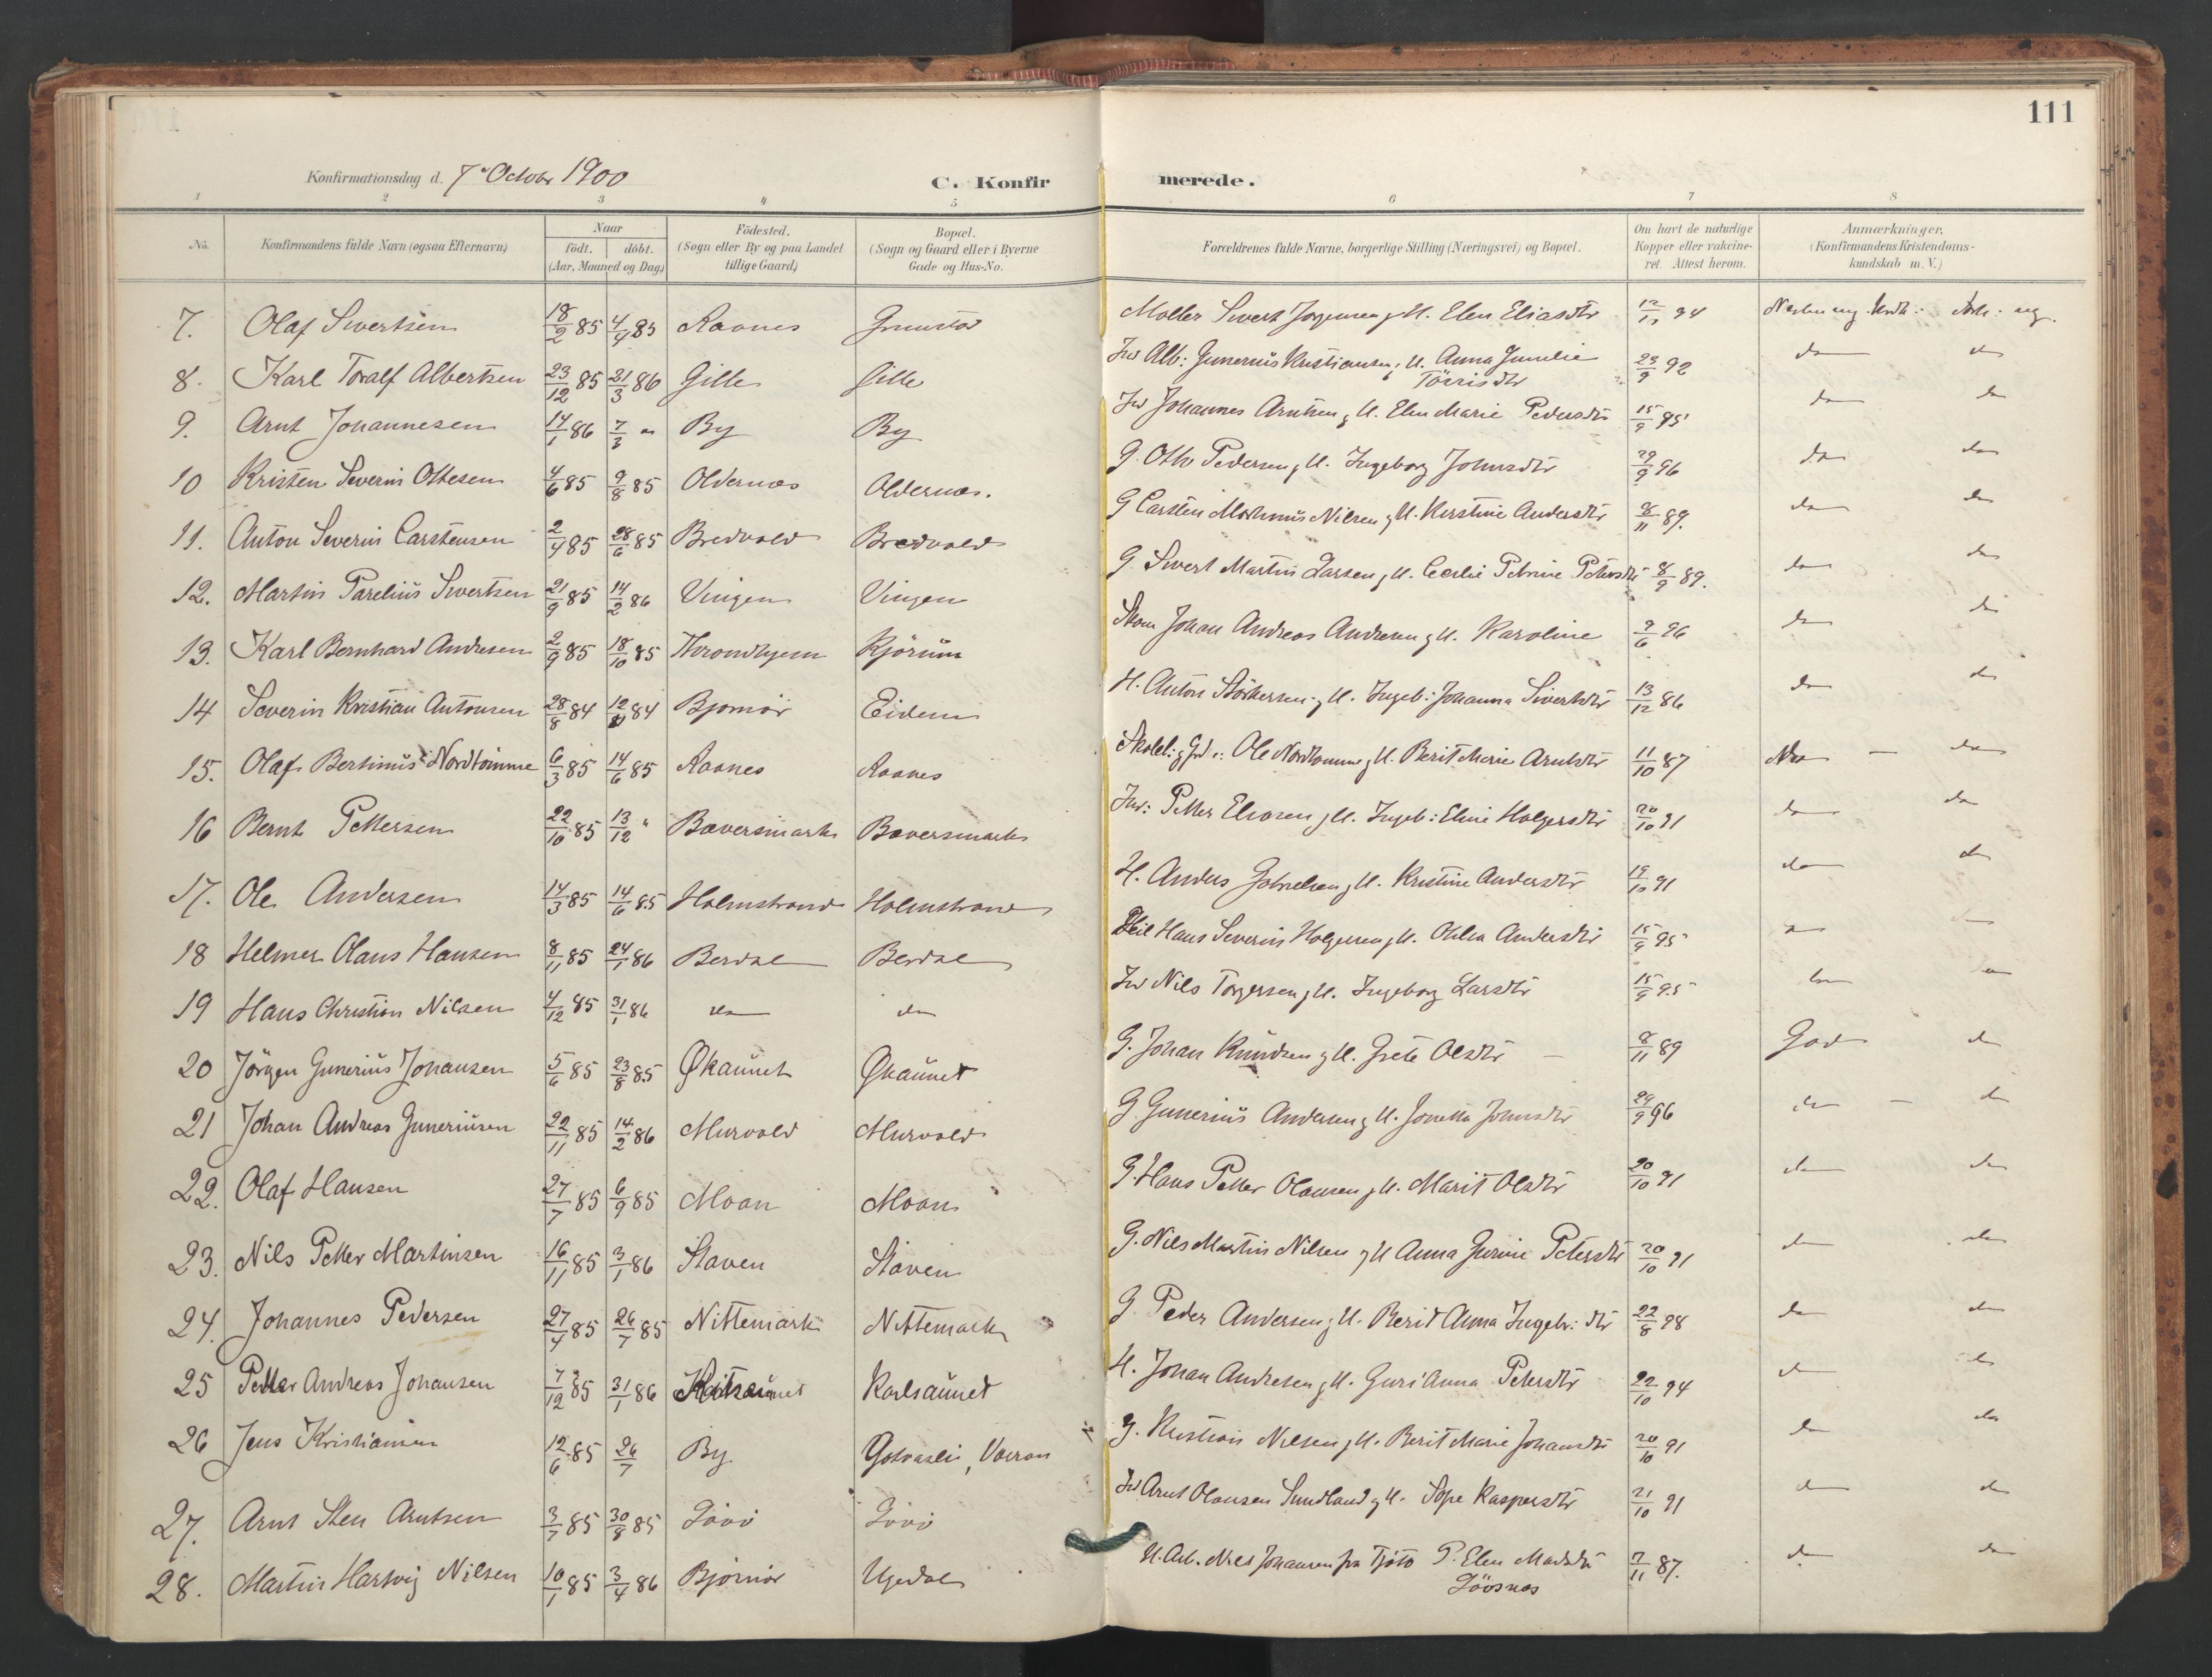 111
Konfirmationsdag d. 7de Octobr 1900
C. Konfirmerede.
1 2 3 4 5 6 7 8
No. Konfirmandens fulde Navn (ogsaa Efternavn) Naar födt. döbt. (Aar, Maaned og Dag.) Födested. (Sogn eller By og paa Landet tillige Gaard) Bopæl. (Sogn og Gaard eller i Byerne Gade og Hus-No. Forældrenes fulde Navne, borgerlige Stilling (Næringsvei) og Bopæl. Om havt de naturlige Kopper eller vakcineret. Attest herom. Anmærkninger, (Konfirmandens Kristendomskundskab m. V.)
7. Olaf Sivertsen 18/2 85 4/4 85 Raanes Møller Sivert Jørgensen, H. Elen Eliasdtr 94
8. Karl Toralf Albertsen 23/12 85 21/3 86 Gille Gille Alb: Gunerius Kristiansen, H. Anna Gunelie Törrisdtr 23/9 92 do do
9. Arnt Johannesen 14/1 86 7/3 " By By Johannes Arntsen, H. Elen Marie Pedersdtr 15/9 95 do do
10 Kristen Severin Ottesen 4/6 85 9/8 85 Oldernæs Oldernæs. G. Otto Pedersen, H. Ingeborg Johnsdtr 29/9 96 do do
11. Anton Severin Carstensen 2/4 85 28/6 85 Bredvold Bredvold G Carsten Nilsen, H. Kirstine Andersdtr 8/11 89. do do
12. Martin Parelius Sivertsen 21/9 85 14/2 86 Vingen Vingen G. Sivert Martin Larsen, H. Cecilie Petrine Petersdtr 8/9 89. do do
13. Karl Bernhard Andresen 2/9 85 18/10 85 Throndhjem Kjørum Skom Johan Andreas Andresen, H. Karoline 9/6 96 do do
14 Severin Kristian Antonsen 28/8 84 12/ 84 Bjørnør Eidem H. Anton Størkersen, H. Ingeb: Johanna Sivertsdtr 13/12 86 do do
15. Olaf Bertinus Nordtømme 6/3 85 14/6 85 Raanes Raanes Skolel: Ole Nordtømme, H. Berit Marie Arntsdtr 11/10 87 do
16 Bernt Pettersen 22/10 85 13/12 " Bæversmark Bæversmark Petter Eliasen, H. Ingeb: Eline Holgersdtr 20/10 91 do do
17. Ole Andersen 14/3 85 14/6 85 Holmstrand Holmstrand H. Anders Gabrielsen, H. Kristine Andersdtr 91 do do
18 Helmer Olaus Hansen 8/11 85 24/1 86 Berdal Berdal Hans Severin Holgersen, H. Andersdtr 15/9 95 do do
19 Hans Christian Nilsen 4/12 85 31/1 86 do do Nils Torgersen, H. Ingeborg Larsdtr 15/9 95 do do
20 Jörgen Gunerius Johansen 5/6 85 23/8 85 Økaunet Økaunet G. Johan Knudsen, H. Grete Olsdtr 8/11 89 God do
21 Johan Andreas Guneriusen 22/11 85 14/2 86 Murvold Murvold G Gunerius Andersen, H. Jonetta Johnsdtr 29/9 96 do do
22. Olaf Hansen 27/7 85 6/9 85 Moan Moan G. Hans Petter Olausen, H. Marit Olsdtr 20/10 91 do do
23. Nils Petter Martinsen 16/11 85 3/1 86 Staven Staven G. Nils Martin Nilsen, H Anna Petersdtr 20/10 91 do do
24. Johannes Pedersen 27/4 85 26/7 85 Nittemark Nittemark G. Peder Andersen, H. Berit Anna Ingebr: dtr 22/8 98 do do
25 Petter Andreas Johansen 7/12 85 31/1 86 Karlsaunet H. Johan Andresen, H. Guri Anna Petersdtr 22/10 94 do do
26 Jens Kristiansen 12/6 85 26/7 By G. Kristian Nilsen, H. Berit Marie Johansdtr 20/10 91 do do
27. Arnt Sten Arntsen 3/7 85 30/8 85 Løvø Løvø Arnt Olausen Sundland, H. Kaspersdtr 21/10 91 do do
28. Martin Hartvig Nilsen 10/1 85 3/4 86 Bjørnør Ugedal Nils Johansen fra Tjøtø P. Elen Madsdtr Løvsnes 7/11 87. do do